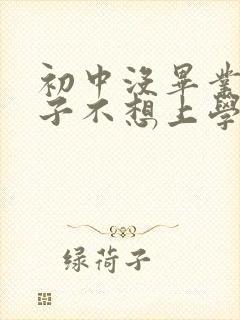 初中没畢業
子不想上學
绿荷子